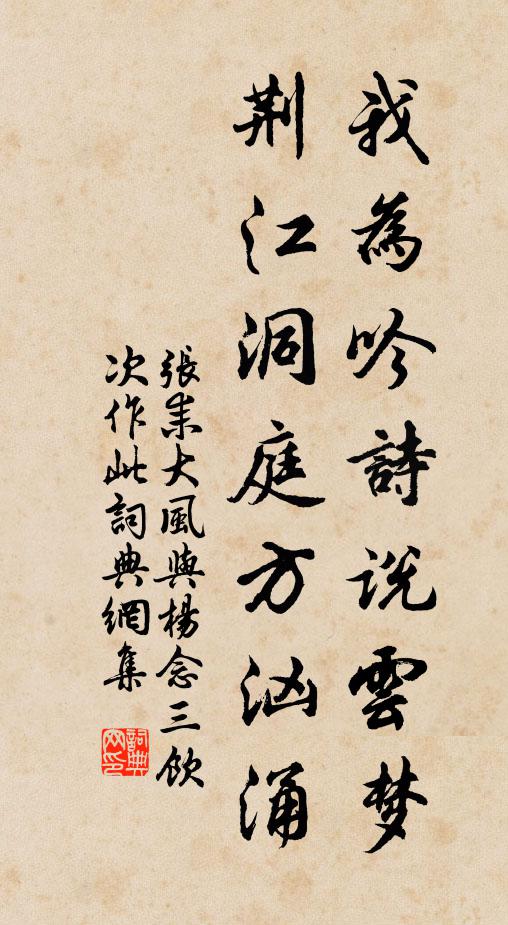 我為吟詩說雲梦
荆江洞庭方汹涌
張耒大風與楊念三飲
次作此詞典網集
詞典
网印